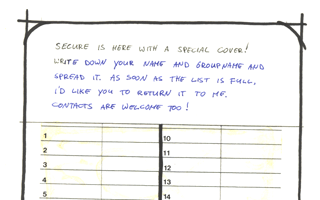 SECURE IS HERE WITH A SPECIAL COVER!
WRITE DOWN YOUR NAME AND GROUPNAME AND
SPREAD IT. AS SOON AS THE LIST IS FULL,
I'D LIKE YOU TO RETURN IT TO ME.
CONTACTS ARE WELCOME TOO!
1 10
2 11
3 12
4 13
5 14